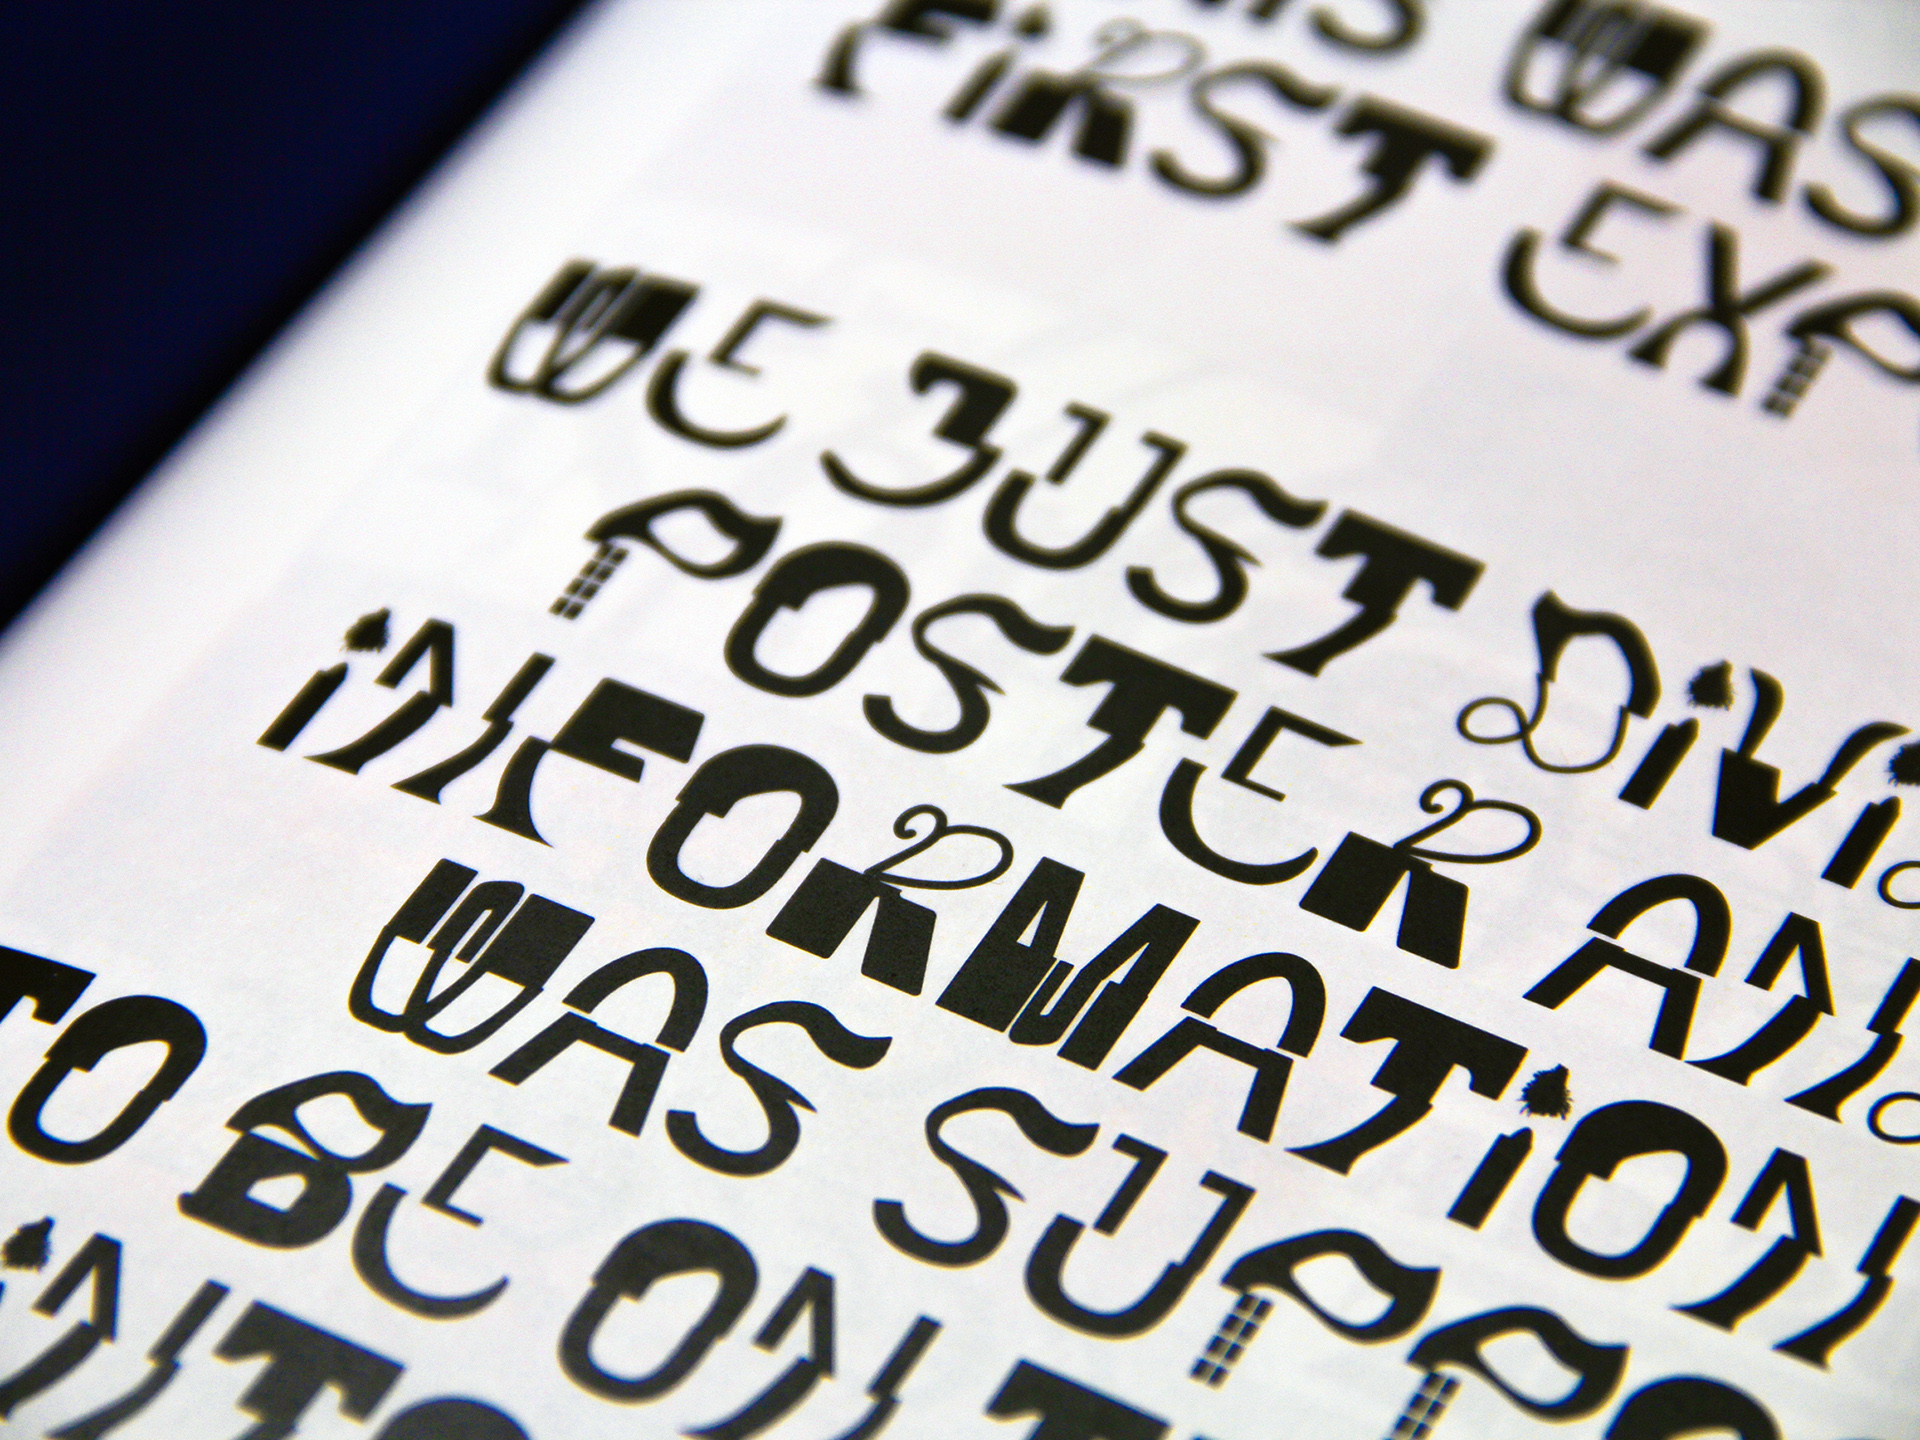 WAS
FIRST EXP
WE JUST DIVI
POSTER AND
INFORMATION
WAS SUPPO
TO BE ON T
INTO